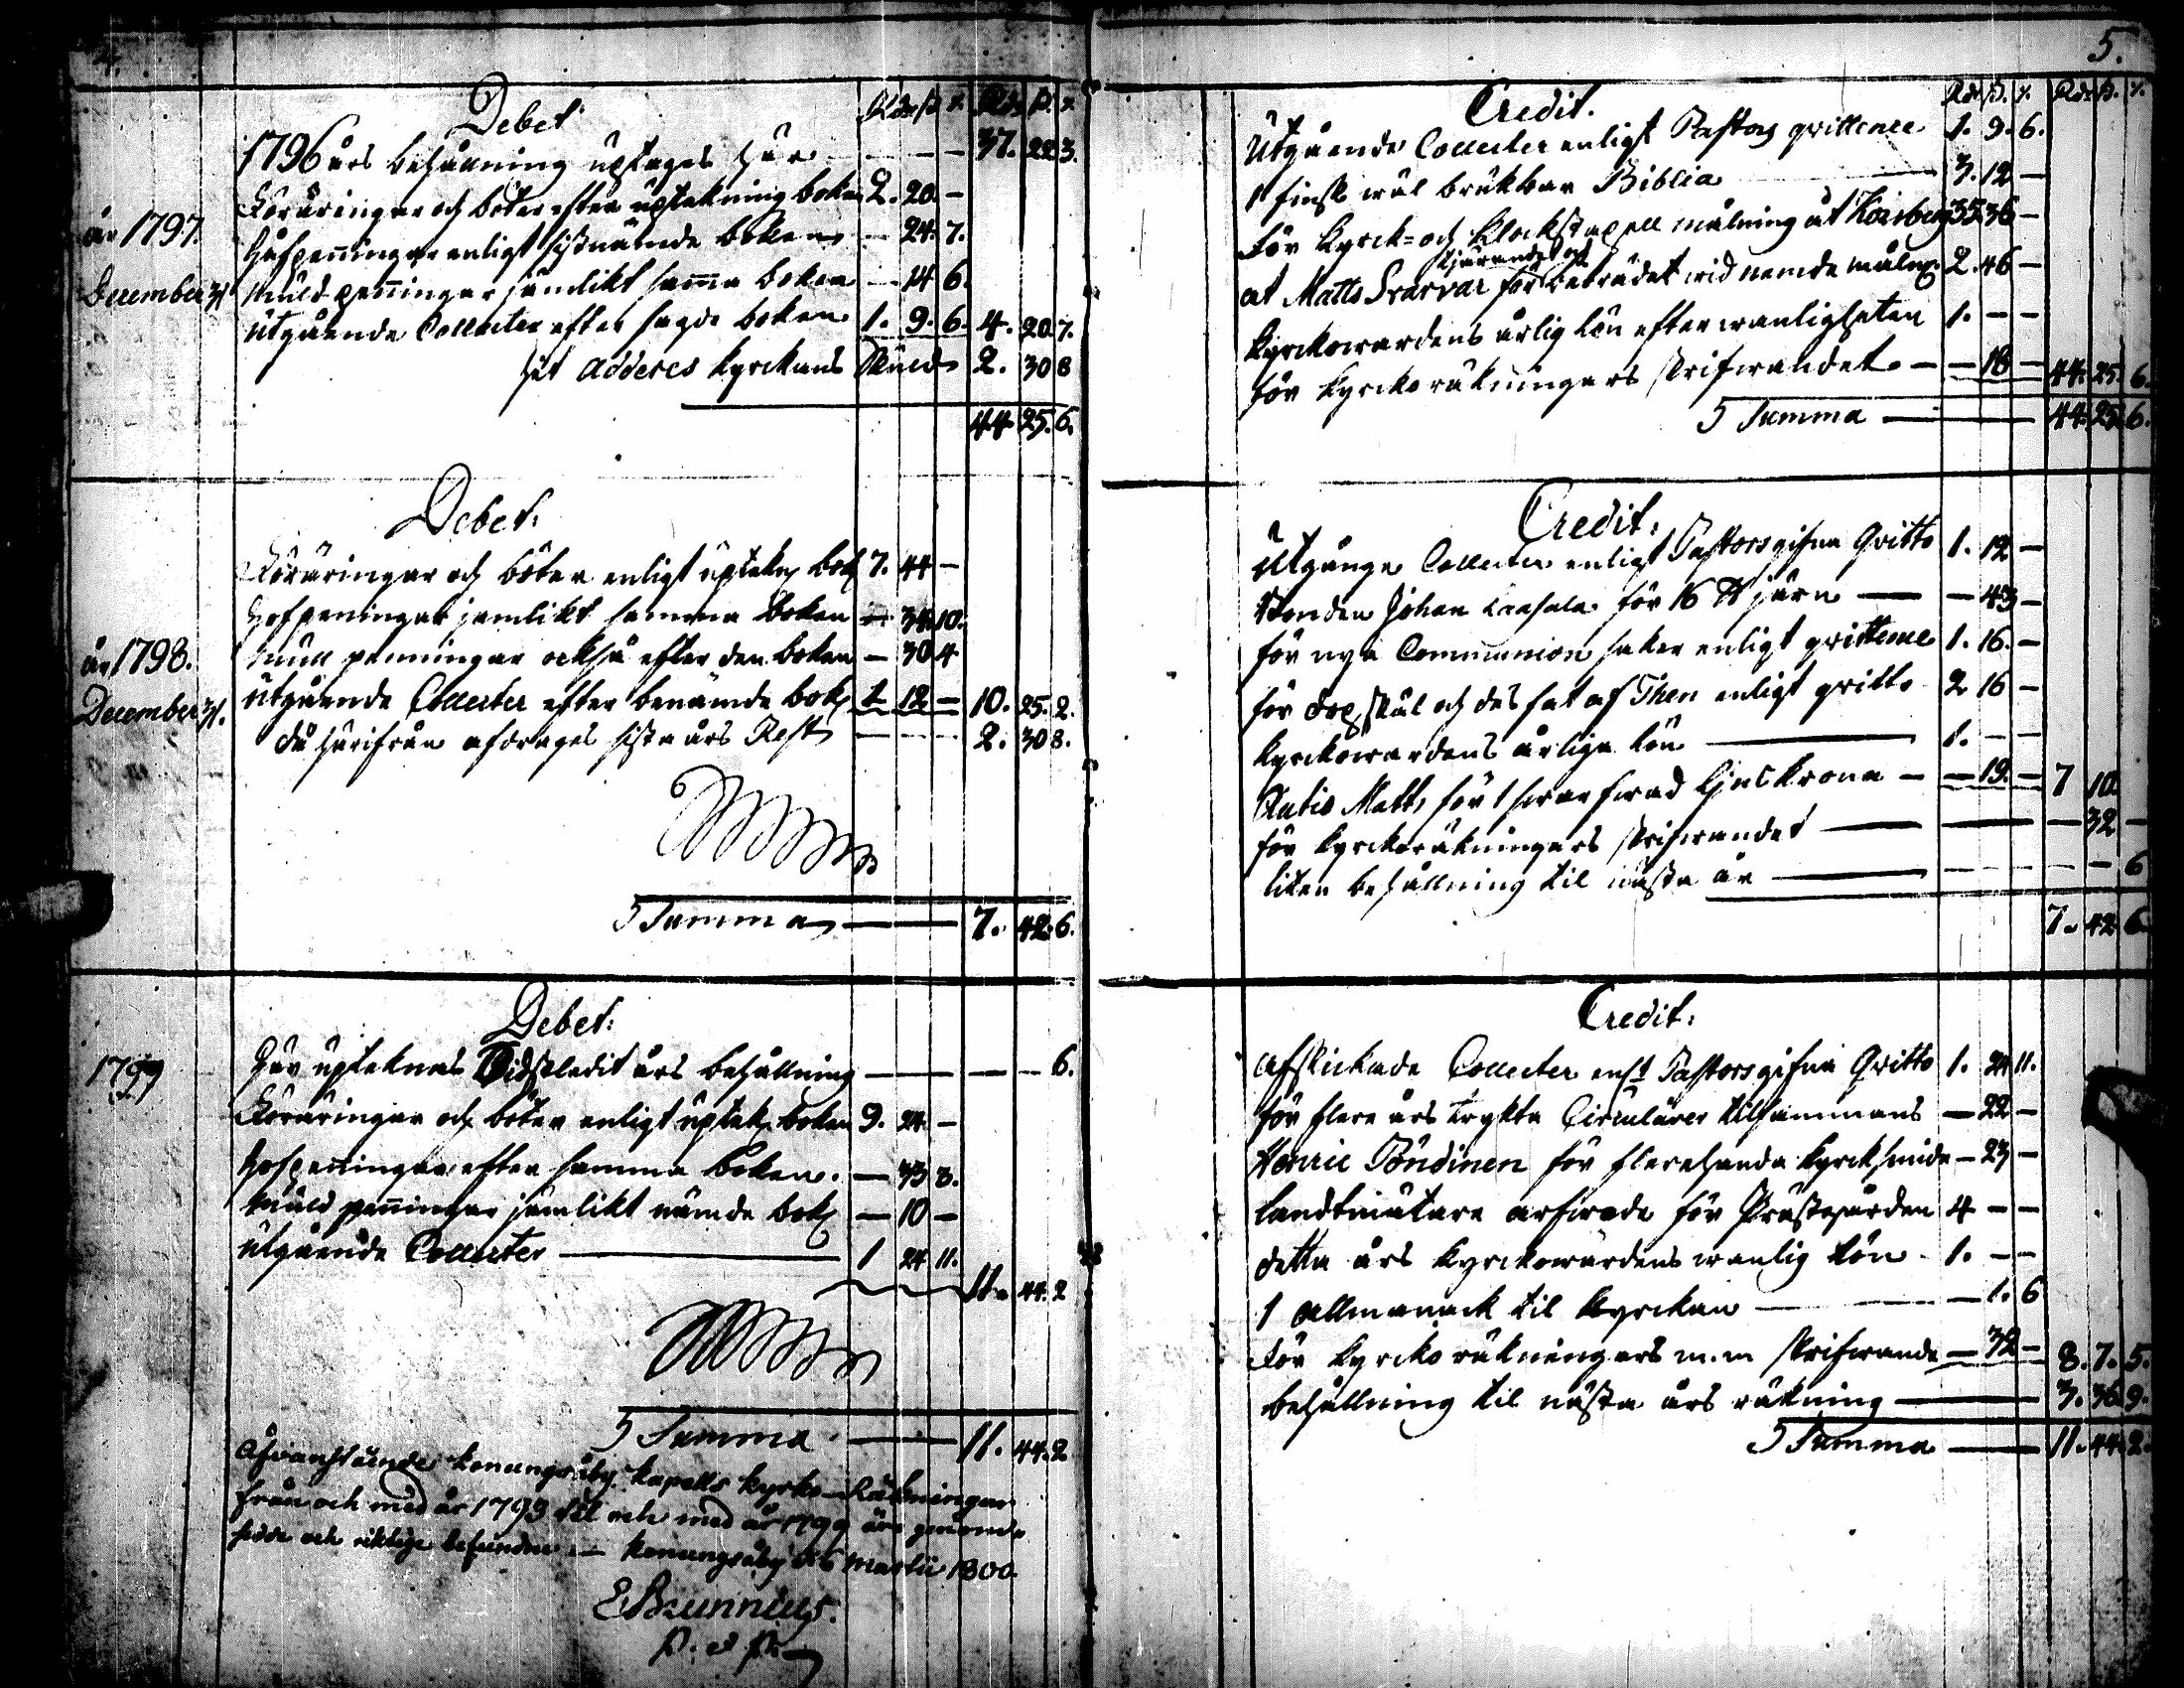 4.
Debet
Rdr ß r. Rdr ß. r.
1796 års behållning uptages här — — — 37. 22. 3.
år 1797.
Föräringar och böter efter uptekning boken 2. 20. —
Håfpenningar enligt sistnämde boken — 24. 7.
December 31
Muld penningar jämlikt samma boken — 14 6.
Utgående Collecter efter sagde boken 1. 9. 6. 4. 20. 7.
hit Adderes kyrckans skuld 2. 30 8
44. 25. 6.
Debet:
Föräringar och böter enligt uptekn bok 7. 44 —
Hofpeningar jemlikt samma boken — 34. 10.
år 1798.
Mull penningar också efter den boken — 30 4
December 31.
Utgående Collecter efter benämde bok 1 12 — 10. 25. 2.
då härifrån afdrages sista års Rest — 2. 30 8.
Summa — 7. 42. 6.
Debet:
1799
Här upteknas sidstledit års behållning — — — 6.
Föräringar och böter enligt uptek boken 9. 24. —
Hofpenningar efter samma boken. — 33 3.
Muld penningar jemlikt nämde bok — 10 —
utgående Collecter — 1 24 11.
11. 44. 2
Summa — 11. 44. 2
Åfvanstående Konungsåby kapells kyrko-Räkningar
från och med år 1793 til och med år 1799 äro genom
sedde och riktige befundne — Konungsåby d. 6 Martii 1800.
E Brunnius.
P. et P.
5.
Credit.
Rdr ß. r. Rdr ß. r.
Utgående Collecter enligt Pastors qvittence 1. 9. 6.
1 finsk wäl brukbar Biblia — 3. 12 —
För kyrck- och klockstapell målning åt Korsberg 35 36 —
tjärandet och
at Matts Svarvar för beträdet wid nemde måln 2. 46 —
kyrckowardens årlig lön efter wanligheten 1. — —
för kyrckoräkningars skrifwandet — — 18 — 44. 25. 6.
Summa — 44. 25 6.
Credit:
Utgångne Collecter enligt Pastors gifna Qvitto 1. 12 —
Bonden Johan för 16 ℔ järn — — 43 —
för nya Communion saker enligt qvittence 1. 16. —
för dop skål och des fat af Then enligt qvitto 2 16 —
kyrckowardens årliga lön — 1. — —
Matts för 1 swarfwad ljus krona — — 19. — 7 10.
för kyrckoräkningars skrifwandet — — 32 —
liten behållning til nästa år — — — 6
7. 42 6.
Credit:
Afskickade Collecter enl:t Pastors gifna Qvitto 1. 24 11.
för flere års tryckta Circulärer tilsammans — 22 —
Henric Pöndinen för flerehanda kyrck smide — 23 —
landtmätare arfwode för Prästegården 4 — —
detta års kyrckowärdens wanlig lön 1. — —
1 Allmanack til kyrckan — — 1. 6
För kyrcko räkningars m.m skrifwande — 32 — 8. 7. 5.
behållning til nästa års räkning — 3. 36 9.
Summa — 11. 44. 2.